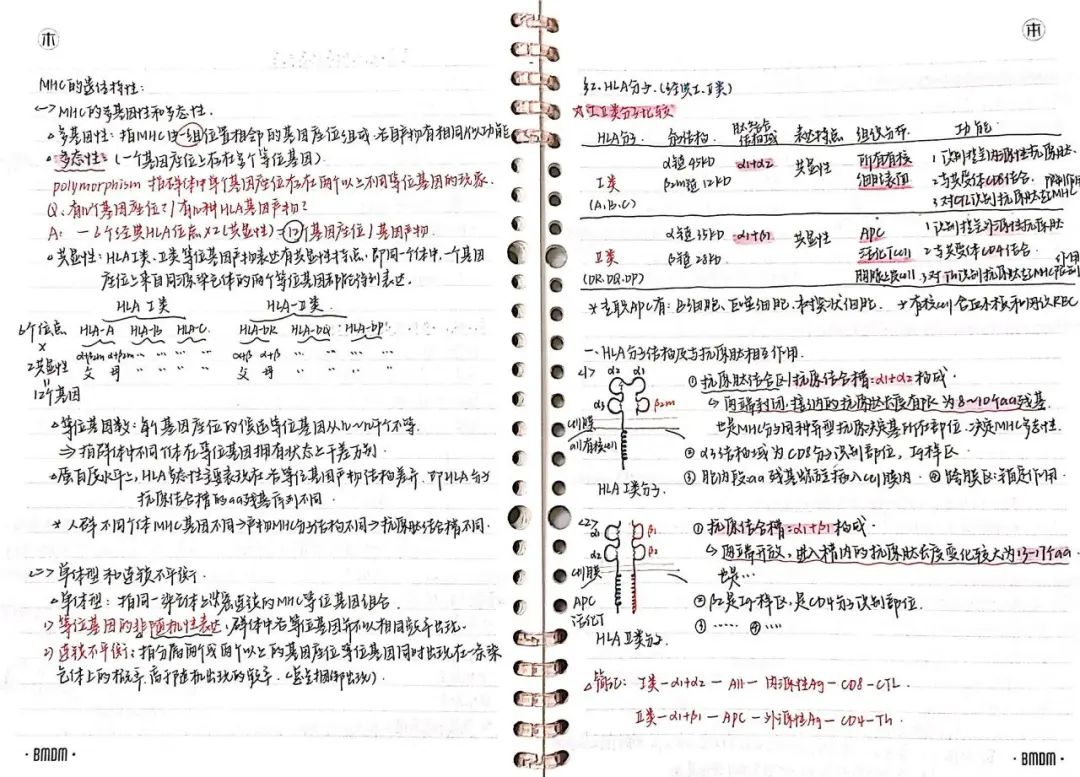 本
MHC的遗传特性:
<1> MHC的多基因性和多态性.
。多基因性: 指MHC由一组位置相邻的基因座位组成,各自产物有相同/似功能
。多态性: (一个基因座位上存在多个等位基因)
polymorphism 指群体中单个基因座位存在两个以上不同等位基因的现象.
Q: 有几个基因座位?/有几种HLA基因产物?
A: 一6个经典HLA位点×2(共显性)=12个基因座位/基因产物.
。共显性: HLA I类、II类等位基因产物表达有共显性特点,即同一个体中,一个基因
座位上来自同源染色体的两个等位基因都能得到表达.
HLA I类 HLA-II类
6个位点 HLA-A HLA-B HLA-C. HLA-DR HLA-DQ HLA-DP
×
2共显性 α+β2m α+β2m α+β α+β
父 母 父 母
12个基因
。等位基因数: 每个基因座位的候选等位基因从几~几千个不等.
⇒ 指群体中不同个体在等位基因拥有状态上千差万别.
。蛋白质水平上, HLA多态性主要表现在各等位基因产物结构差异.即HLA分子
抗原结合槽的aa残基序列不同.
* 人群不同个体MHC基因不同→产物MHC分子结构不同→抗原肽结合槽不同.
<2> 单体型和连锁不平衡.
。单体型: 指同一染色体上紧密连锁的MHC等位基因组合.
1) 等位基因的非随机性表达, 群体中各等位基因并不以相同频率出现.
2) 连锁不平衡: 指分属两个或两个以上的基因座位等位基因同时出现在一条染
色体上的概率,高于随机出现的频率.
·BMDM·
本
§2. HLA分子.(经典I、II类)
☆I、II类分子比较
HLA分子. 分子结构. 肽结合结构域 表达特点 组织分布. 功能
α链 45KD α1+α2 共显性 所有有核 1 识别提呈内源性抗原肽.
I类 β2m链 12KD 细胞表面 2 与共受体CD8结合.
(A、B、C) 3 对CTL识别抗原肽起MHC限制作用
α链 35KD α1+β1 共显性 APC 1 识别提呈外源性抗原肽
II类 β链 28KD 活化Tcell 2 与共受体CD4结合.
(DR、DQ、DP) 胸腺上皮cell 3. 对Th识别抗原肽起MHC限制作用
*专职APC有: B细胞、巨噬细胞、树突状细胞. *有核cell
一. HLA分子结构及与抗原肽相互作用.
<1> α2 α1
α3 β2m
cell膜
all有核cell
HLA I类分子.
① 抗原肽结合区/抗原结合槽: α1+α2构成.
↳ 两端封闭,接纳的抗原肽长度有限 为8~10个aa残基.
② α3结构域为CD8分子识别部位, Ig样区.
③ 胞内段aa残基 ④ 跨膜区:锚定作用.
<2>
α1 β1
α2 β2
cell膜
APC
活化T
HLA II类分子.
① 抗原结合槽: α1+β1构成.
↳ 两端开放,进入槽内的抗原肽长度变化较大为13-17个aa.
也是…
② β2是Ig样区,是CD4分子识别部位.
③ …… ④ ….
△简记: I类-α1+α2 - All - 内源性Ag - CD8 - CTL.
II类-α1+β1 - APC - 外源性Ag - CD4 - Th.
·BMDM·